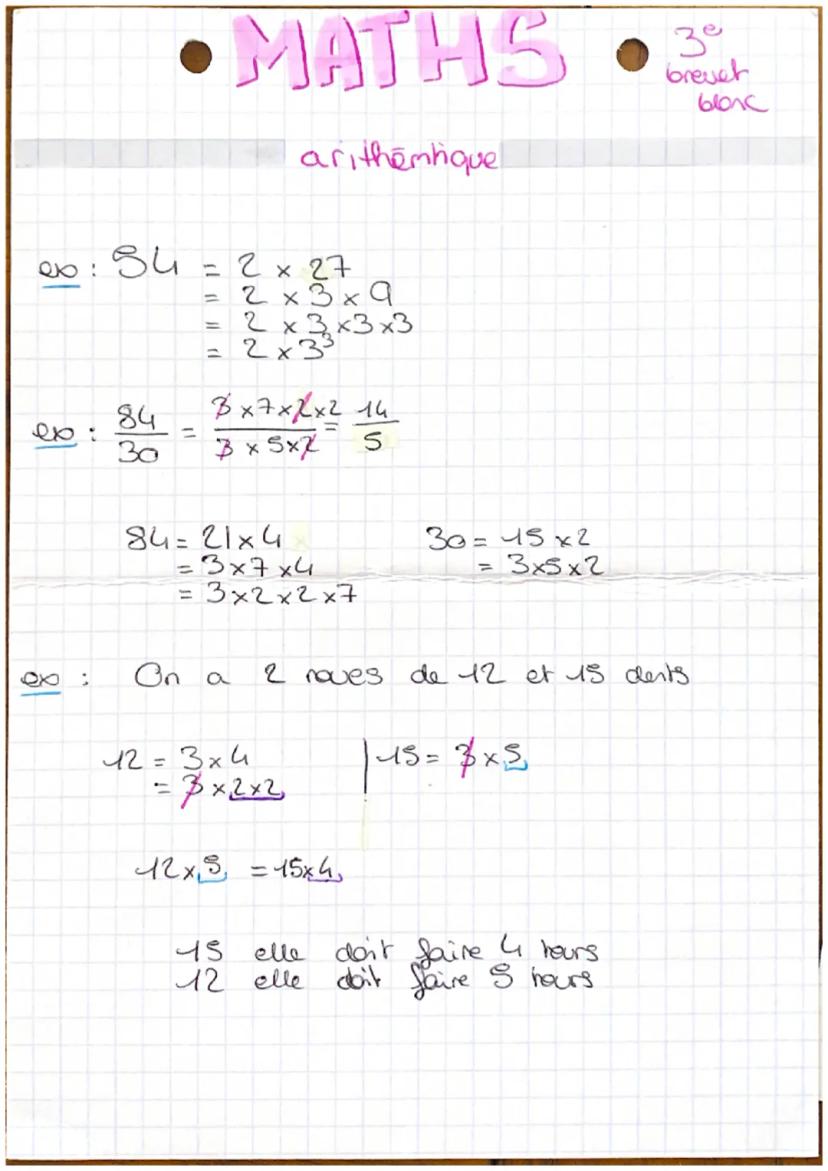 MATHS
3e
brevet
blanc
arithémtique
ex : 54 = 2 × 27
= 2 × 3 × 9
= 2 × 3 × 3 × 3
= 2 × 3³
ex : 84/30 = 3 × 7 × 2 × 2 / 3 × 5 × 2 = 14/5
84 = 21 × 4
= 3 × 7 × 4
= 3 × 2 × 2 × 7
30 = 15 × 2
= 3 × 5 × 2
ex : On a 2 roues de 12 et 15 dents
12 = 3 × 4
= 3 × 2 × 2
15 = 3 × 5
12 × 5 = 15 × 4
15 elle doit faire 4 tours
12 elle doit faire 5 tours